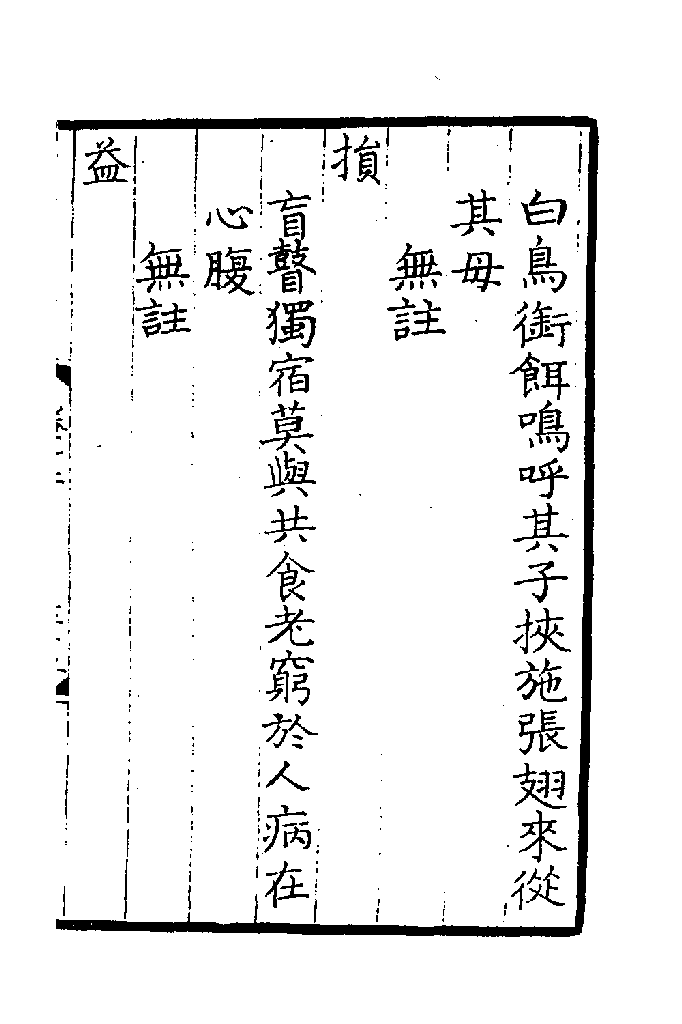 白鳥銜餌鳴呼其子挾施張翅來從
其母
無註
損
盲瞽獨宿莫與共食老窮於人病在
心腹
無註
益